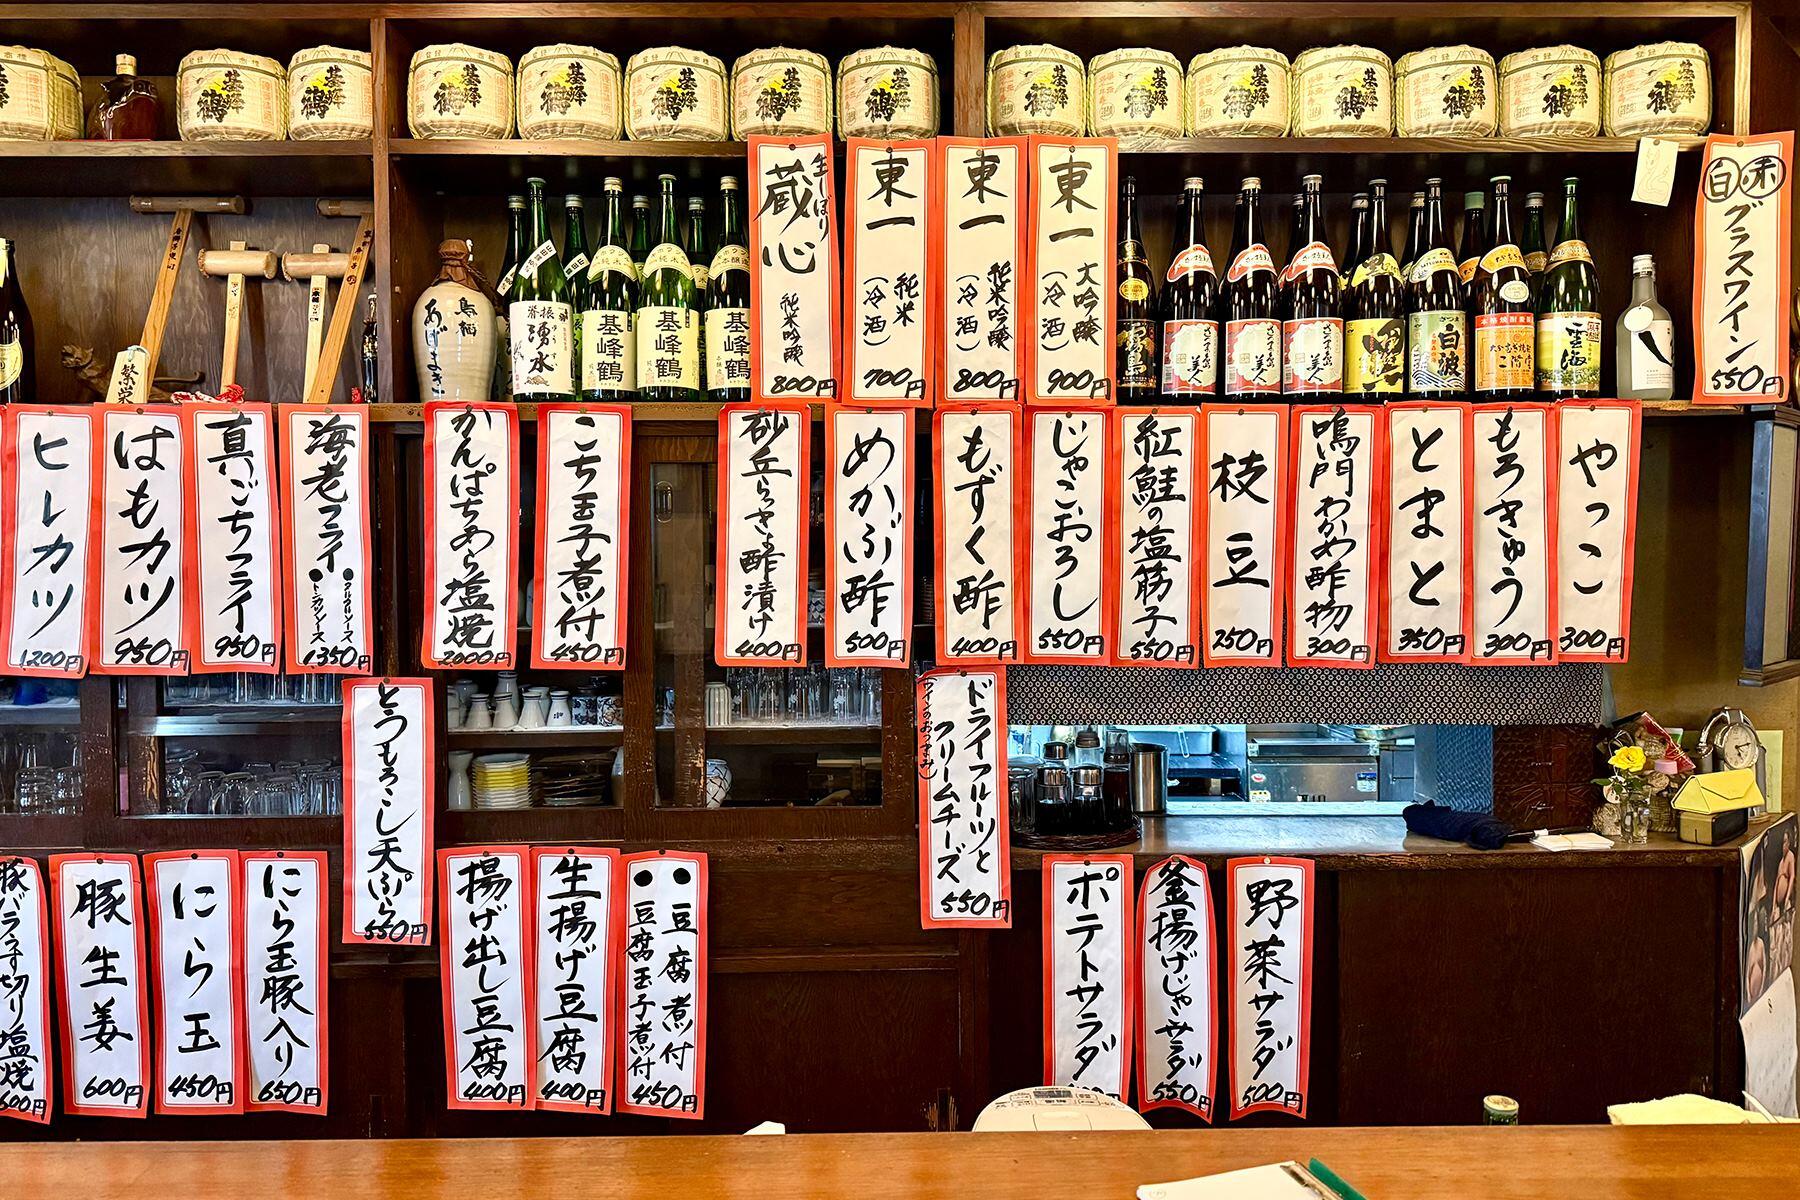 基峰鶴
基峰鶴
基峰鶴
基峰鶴
基峰鶴
基峰鶴
基峰鶴
基峰鶴
基峰鶴
基峰鶴
基峰鶴
基峰鶴
基峰鶴
基峰鶴
白・赤
グラスワイン
550円
東一
大吟醸
(冷酒)
900円
東一
純米吟醸
(冷酒)
800円
東一
純米
(冷酒)
700円
生しぼり
蔵心
純米吟醸
800円
湧水
基峰鶴
基峰鶴
基峰鶴
霧島
さつま美人
さつま美人
さつま美人
伊佐錦
白波
本格焼酎
二階堂
雲海
繁栄
やっこ
300円
もろきゅう
300円
とまと
350円
鳴門わかめ酢物
300円
枝豆
250円
紅鮭の塩筋子
550円
じゃこおろし
550円
もずく酢
400円
めかぶ酢
500円
砂丘らっきょ酢漬け
400円
こち玉子煮付
450円
かんぱちあら塩焼
2000円
海老フライ
●タルタルソース
●トンカツソース
1,350円
真いごちフライ
950円
はもカツ
950円
ヒレカツ
1,200円
ドライフルーツと
クリームチーズ
(ワインのおつまみ)
550円
とうもろこし天ぷら
550円
野菜サラダ
500円
釜揚げじゃこサラダ
550円
ポテトサラダ
●豆腐煮付
●豆腐玉子煮付
450円
生揚げ豆腐
400円
揚げ出し豆腐
400円
にら玉豚入り
650円
にら玉
450円
豚生姜
600円
豚バラ厚切り塩焼
600円